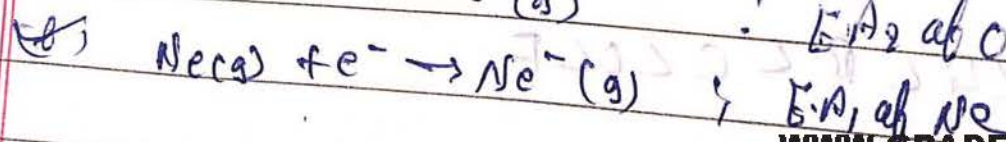 (g) ; E.A₂ of O
Ne(g) + e⁻ → Ne⁻(g) ; E.A₁ of Ne